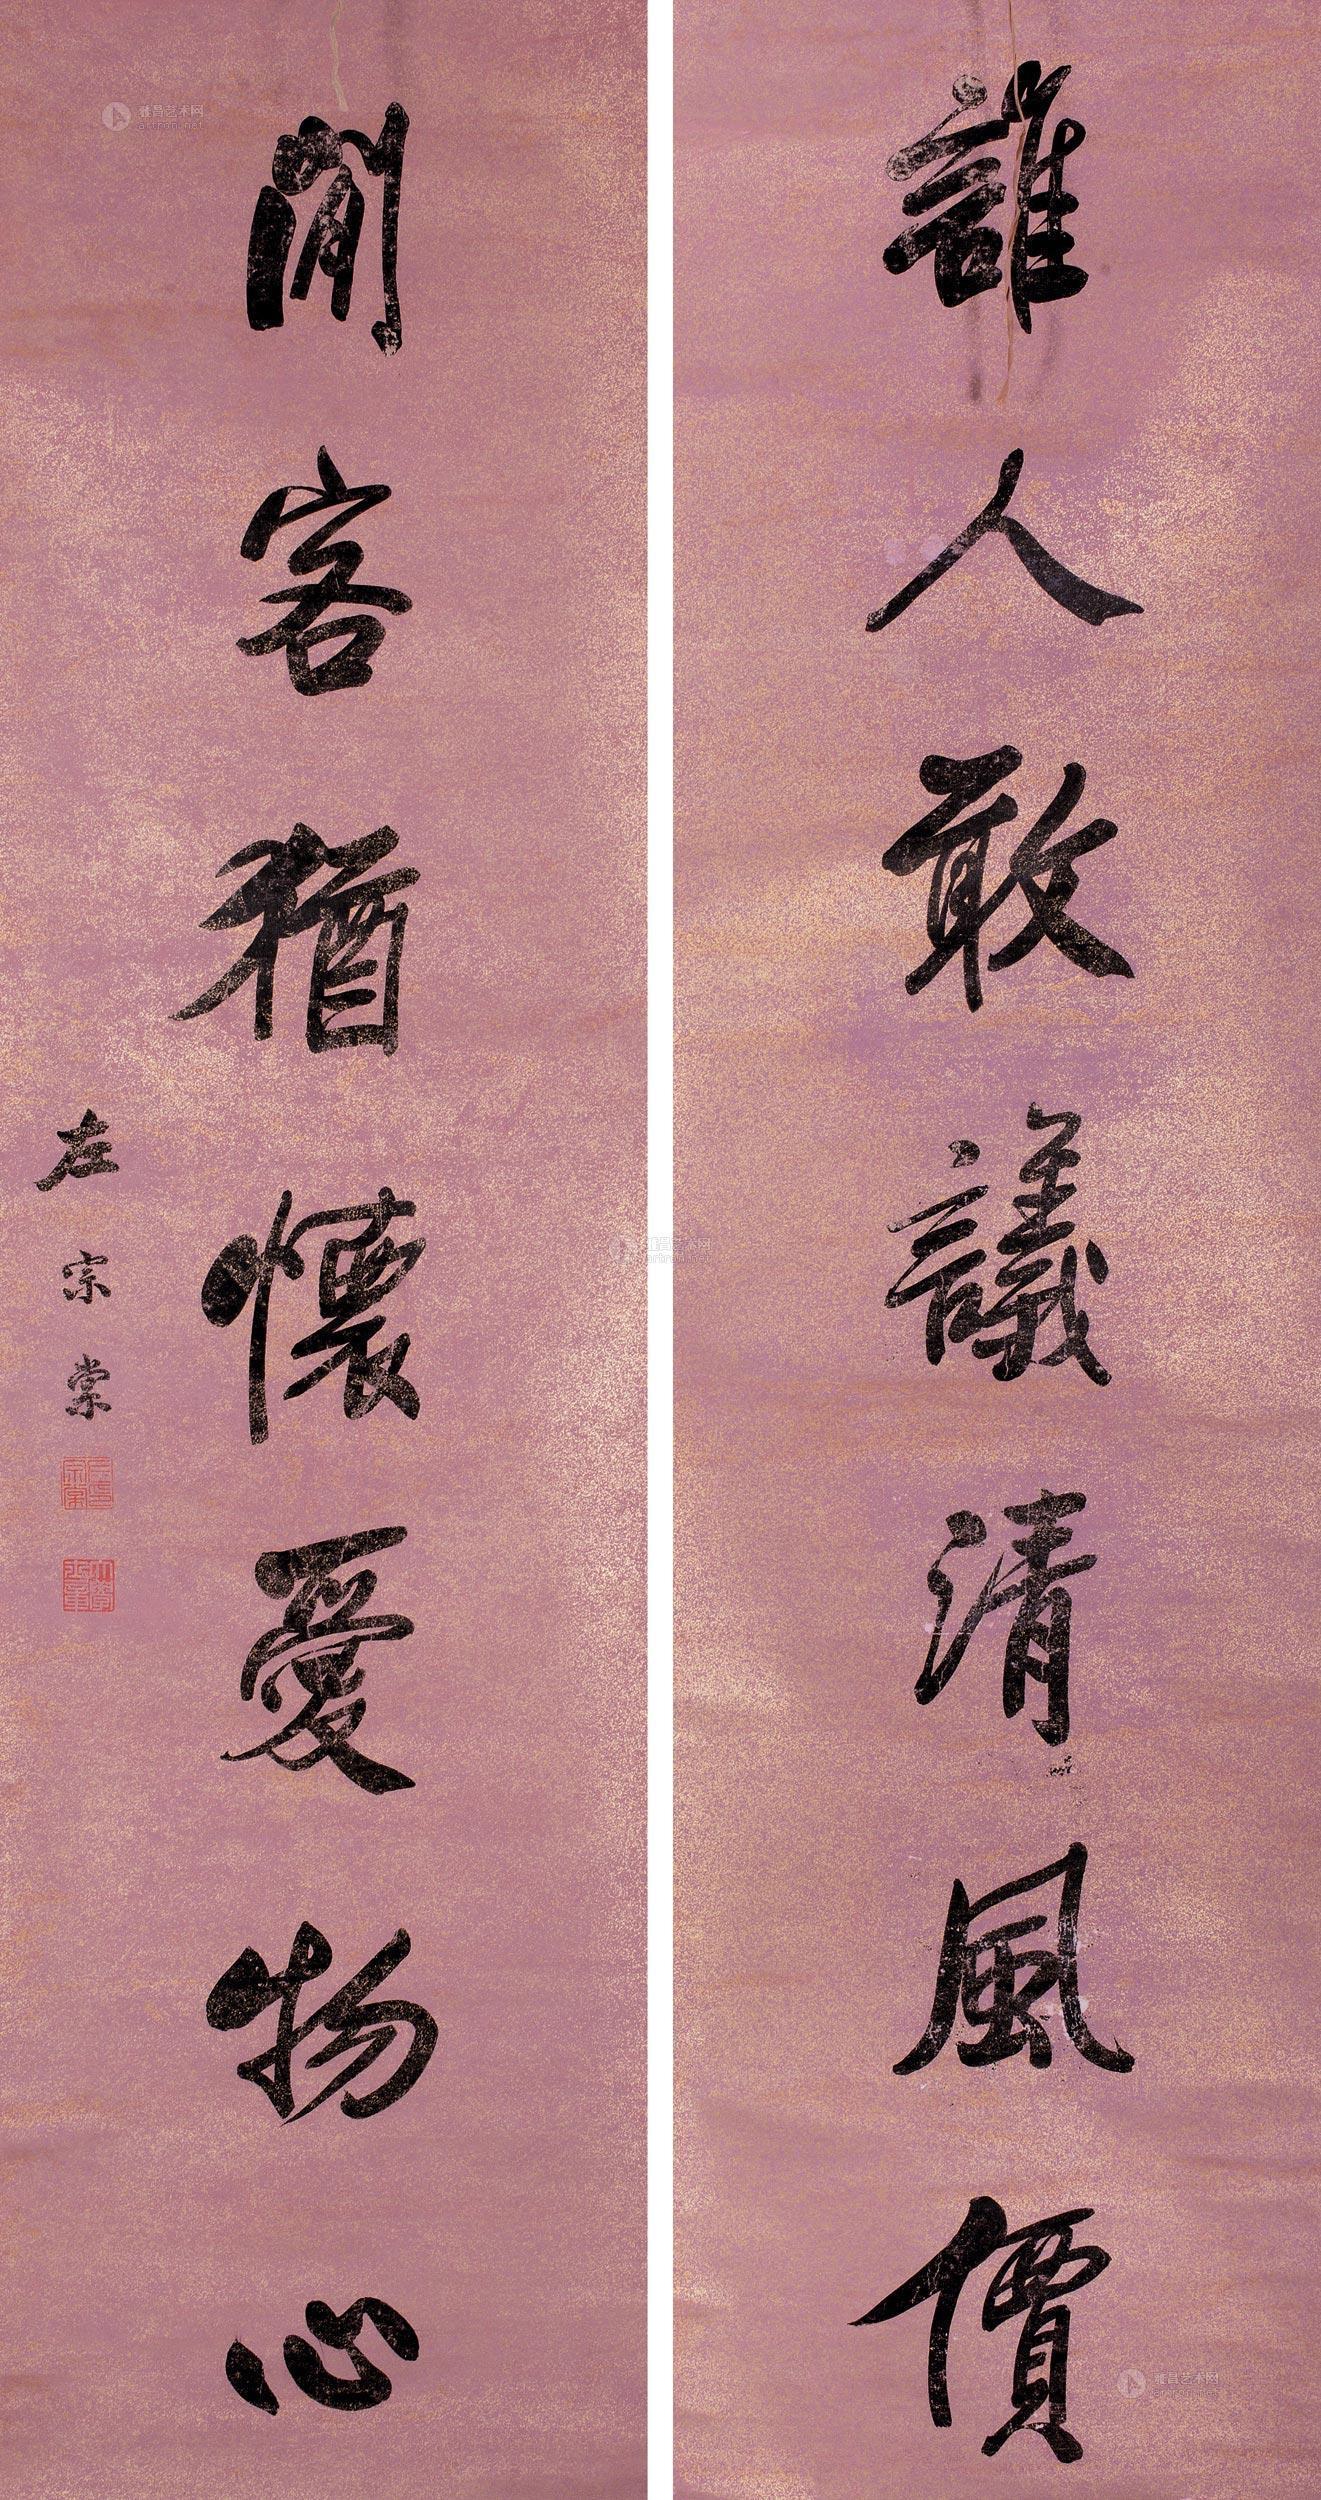 誰人敢議清風價
閒客猶懷愛物心
左宗棠
雅昌艺术网
artron.net
雅昌艺术网
artron.net
雅昌艺术网
artron.net